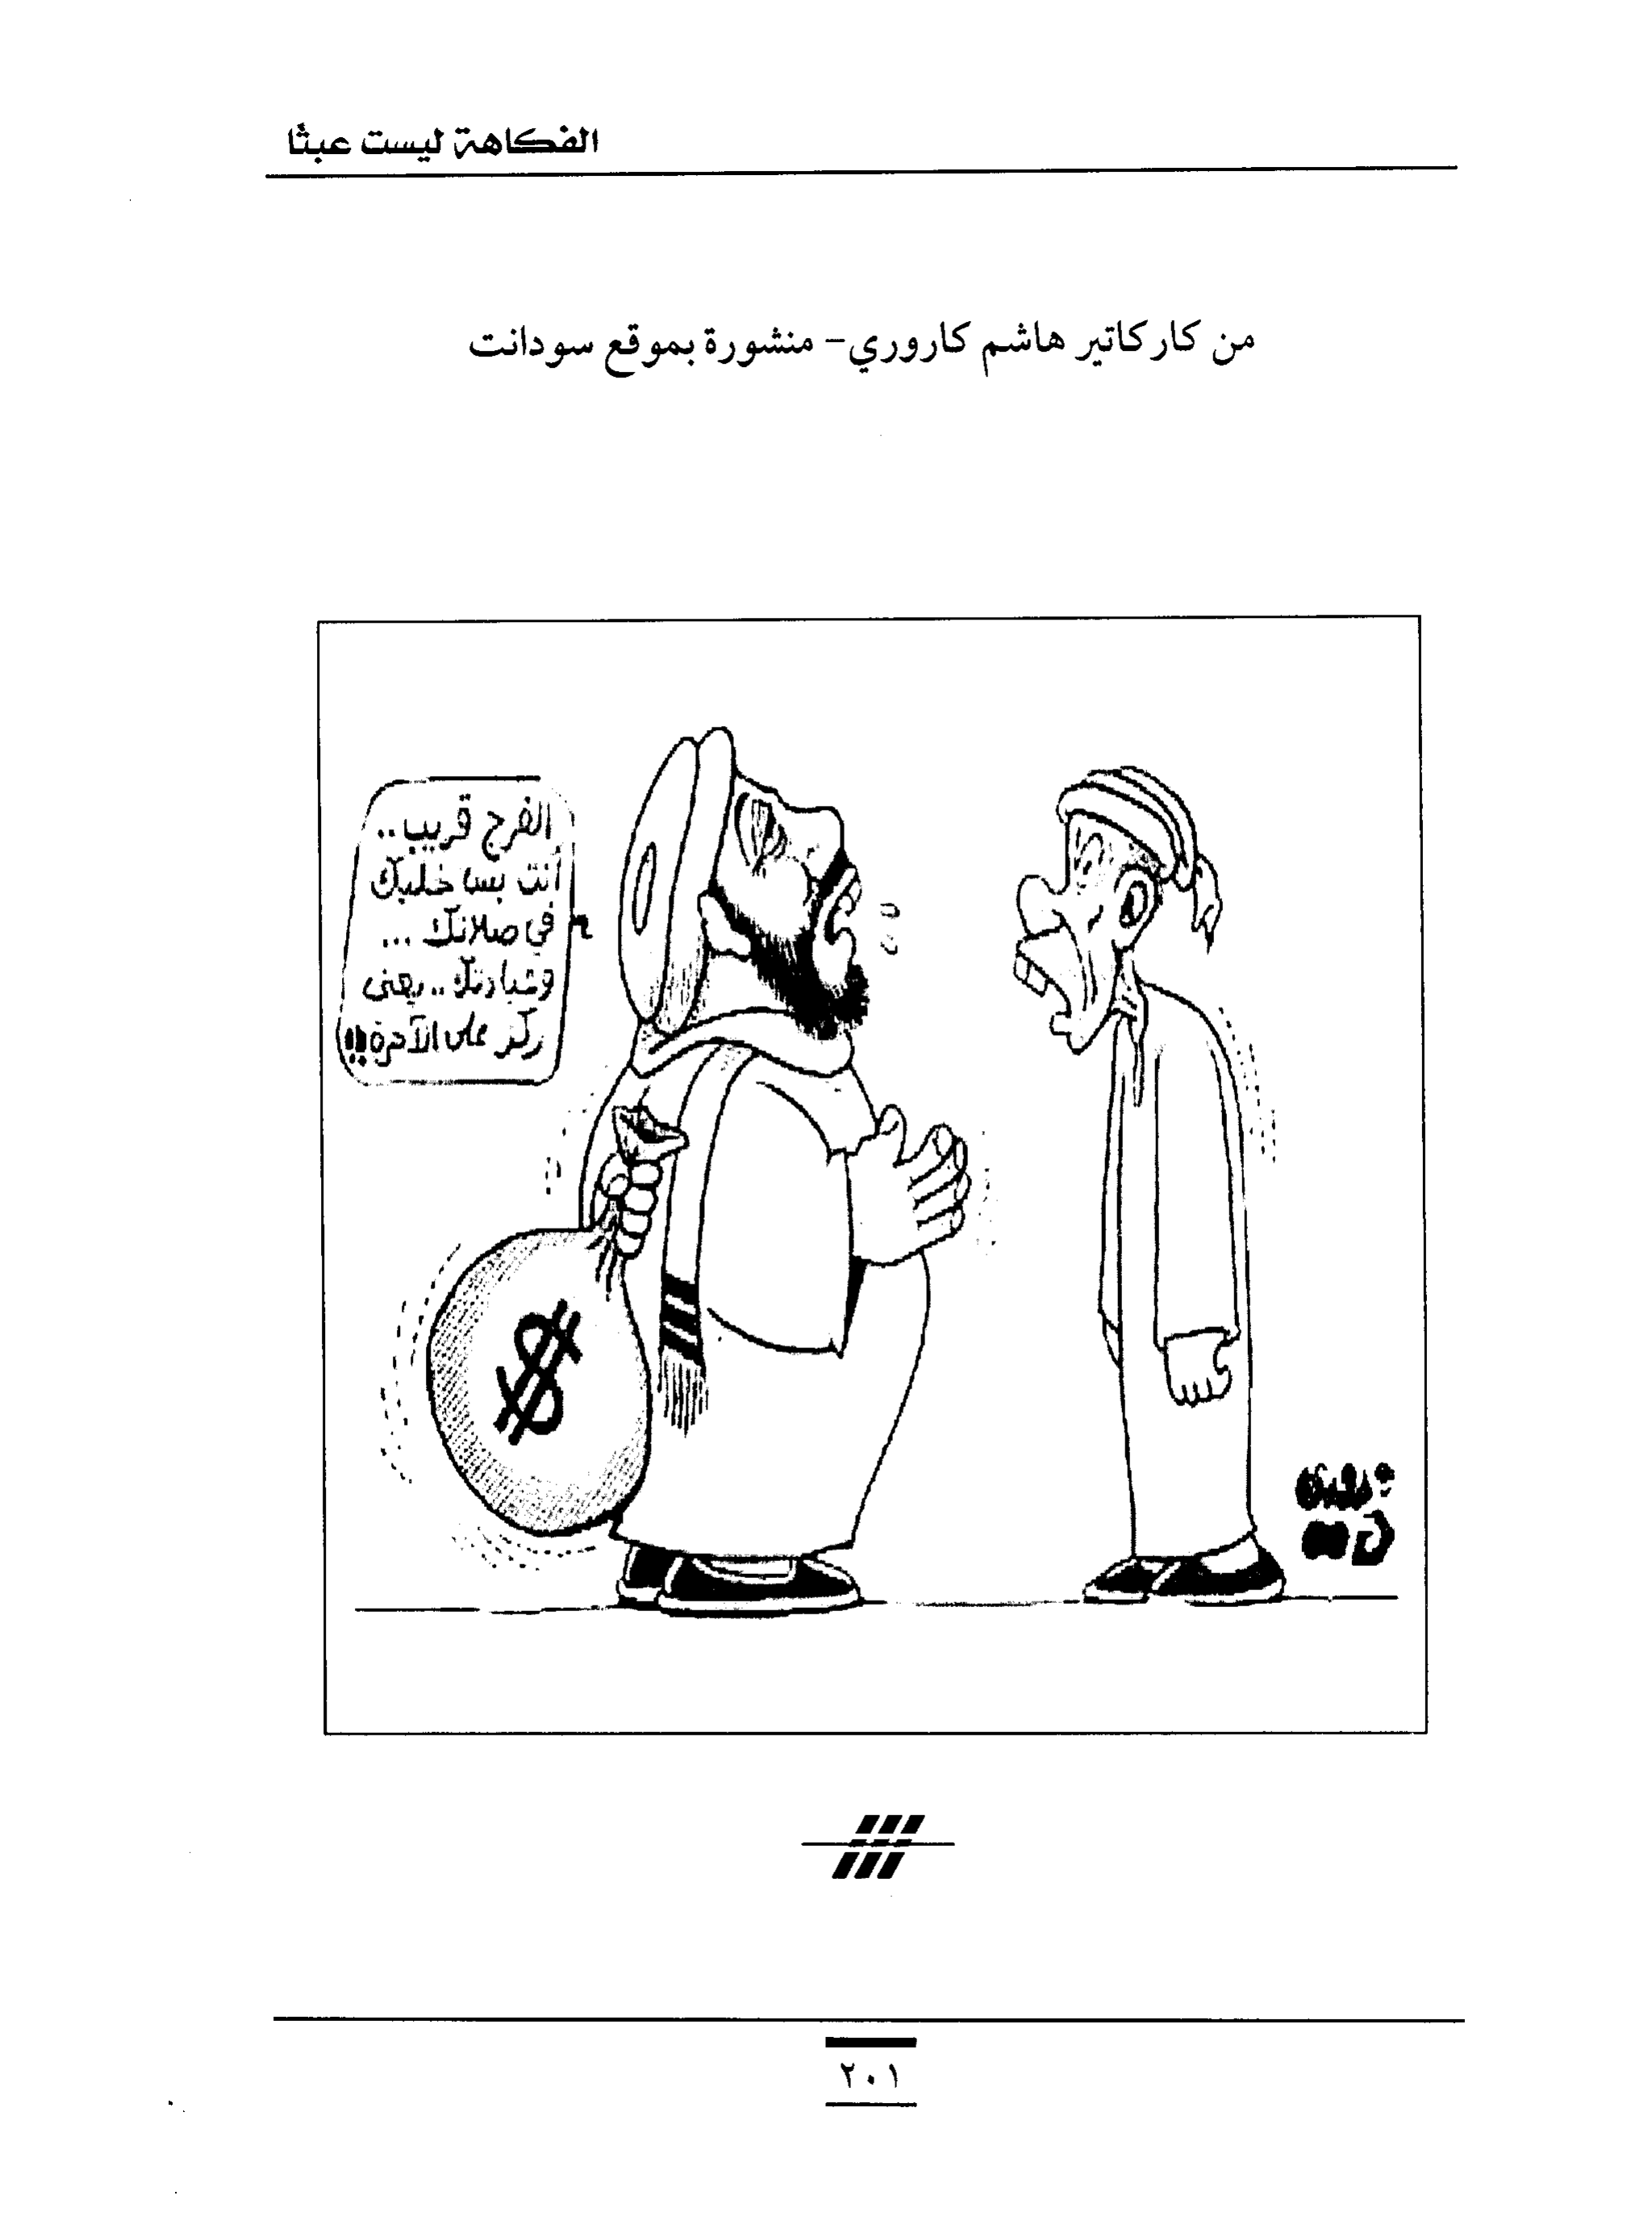 الفكاهة ليست عبثًا
من كاركاتير هاشم كاروري- منشورة بموقع سودانت
الفرج قريب..
أنت بس خليك
في صلاتك...
وعبادتك.. يعنى
ركز على الآخرة!!
$
٢٠١